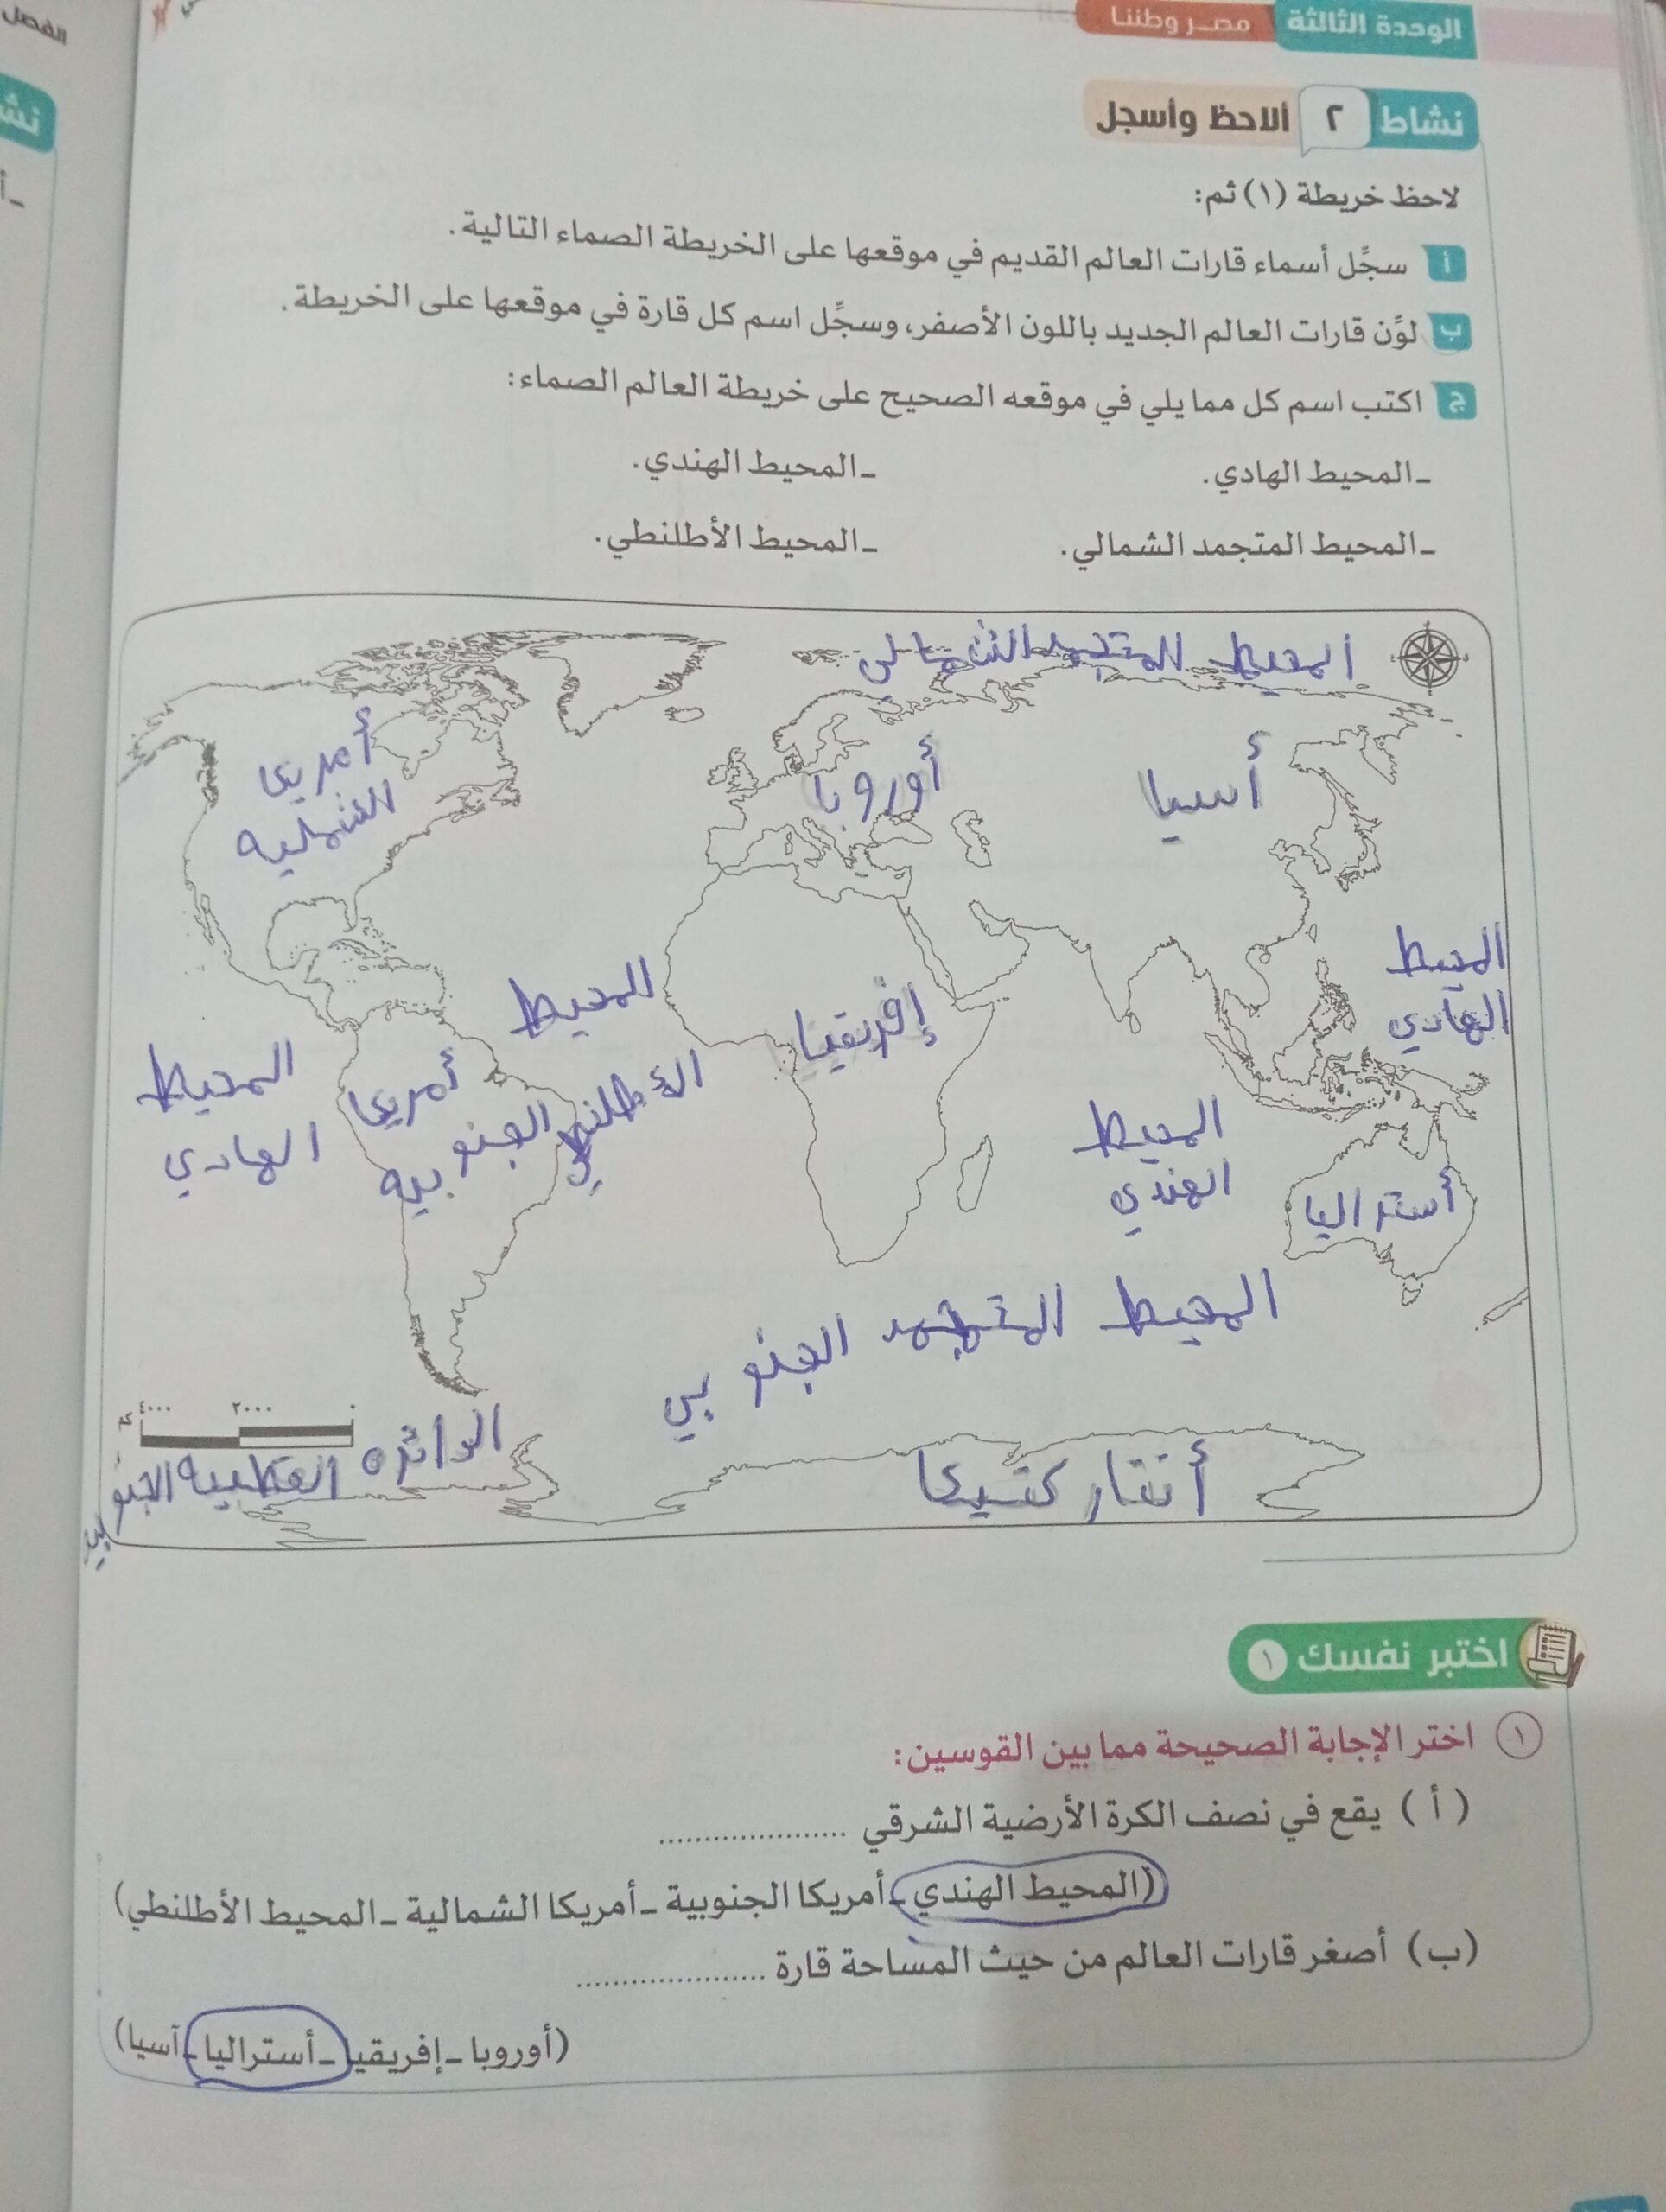 الفصل
نش
الوحدة الثالثة مصر وطننا
نشاط ٢ ألاحظ وأسجل
لاحظ خريطة (١) ثم:
أ سجِّل أسماء قارات العالم القديم في موقعها على الخريطة الصماء التالية.
ب لوِّن قارات العالم الجديد باللون الأصفر، وسجِّل اسم كل قارة في موقعها على الخريطة.
ج اكتب اسم كل مما يلي في موقعه الصحيح على خريطة العالم الصماء:
ـ المحيط الهادي. ـ المحيط الهندي.
ـ المحيط المتجمد الشمالي. ـ المحيط الأطلنطي.
المحيط المتجمد الشمالي
أمريكا
الشماليه
أوروبا
أسيا
المحيط
الهادي
المحيط
الأطلنطي
إفريقيا
المحيط
الهادي
أمريكا
الجنوبيه
المحيط
الهندي
أستراليا
المحيط المتجمد الجنوبي
٤٠٠٠ ٢٠٠٠ ٠ كم
الدائره القطبيه الجنوبيه
أنتاركتيكا
اختبر نفسك ١
١ اختر الإجابة الصحيحة مما بين القوسين:
( أ ) يقع في نصف الكرة الأرضية الشرقي .....................
(المحيط الهندي ـ أمريكا الجنوبية ـ أمريكا الشمالية ـ المحيط الأطلنطي)
(ب) أصغر قارات العالم من حيث المساحة قارة .....................
(أوروبا ـ إفريقيا ـ أستراليا ـ آسيا)